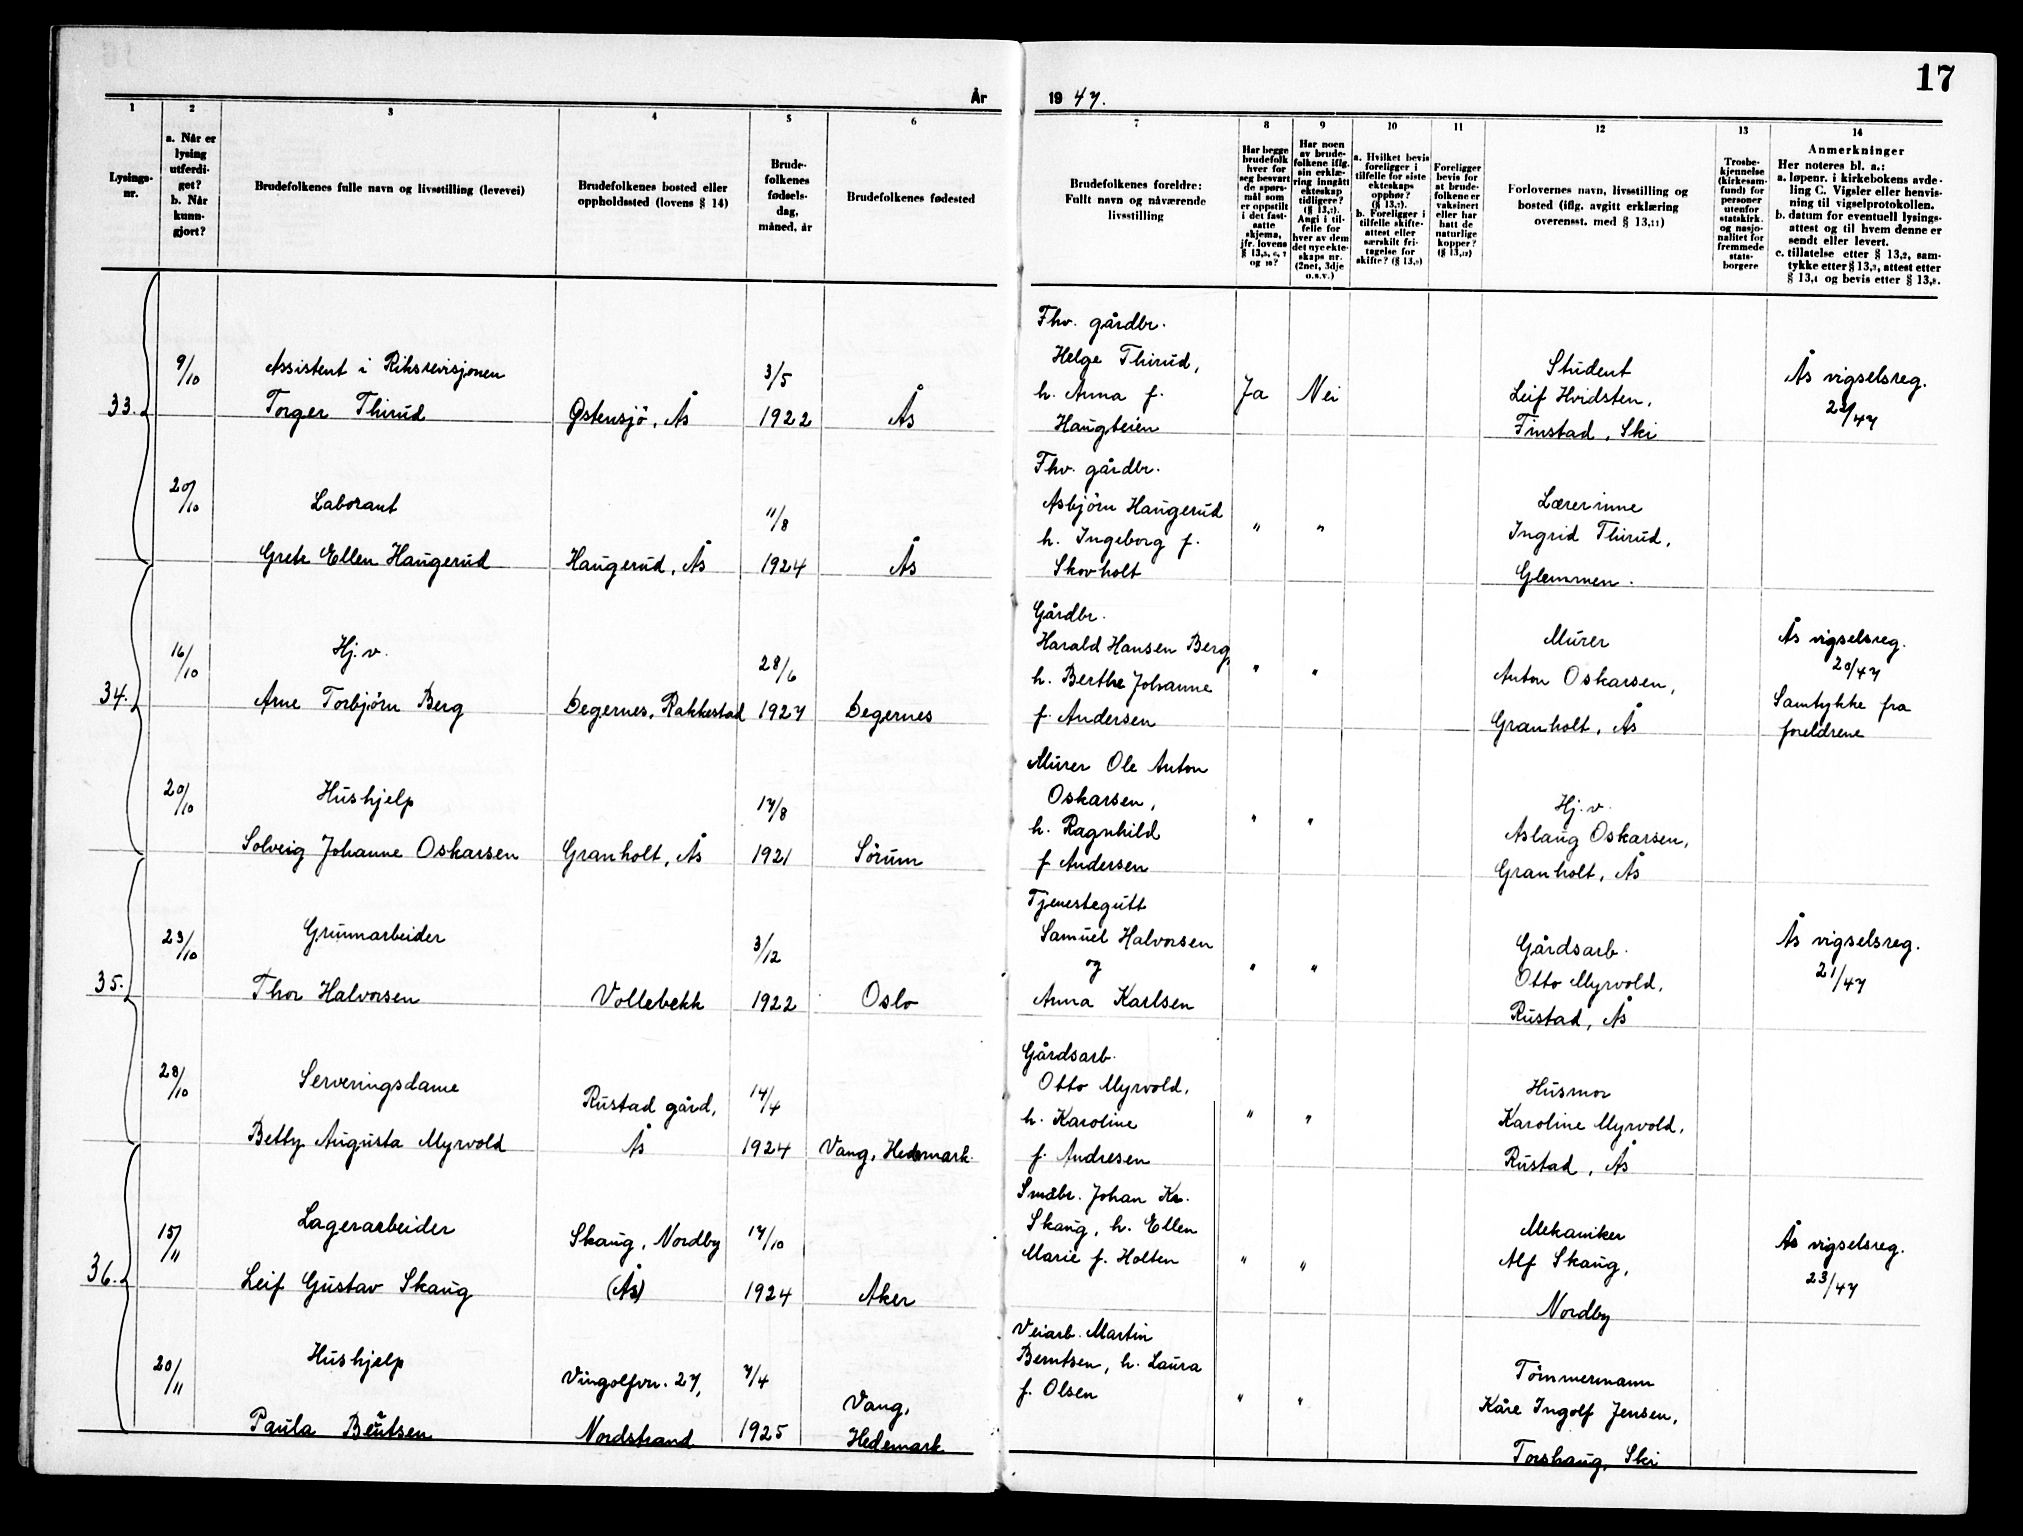 17
År 19 47.
1 2 3 4 5 6 7 8 9 10 11 12 13 14
Lysings-
nr.
a. Når er
lysing
utferdi-
get?
b. Når
kunn-
gjort?
Brudefolkenes fulle navn og livsstilling (levevei)
Brudefolkenes bosted eller
oppholdssted (lovens § 14)
Brude-
folkenes
fødsels-
dag,
måned, år
Brudefolkenes fødested
Brudefolkenes foreldre:
Fullt navn og nåværende
livsstilling
Har begge
brudefolk
hver for
seg besvart
de spørs-
mål som
er oppstilt
i det fast-
satte
skjema,
jfr. lovens
Har noen
av brude-
folkene iflg.
sin erklæ-
ring inngått
ekteskap
tidligere?
(§ 13,7).
Angi i til-
felle for
hver av dem
det nye ekte-
skaps nr.
(2net, 3dje
o.s.v.)
a. Hvilket bevis
foreligger i
tilfelle for siste
ekteskaps
opphør?
(§ 13,7).
b. Foreligger i
tilfelle skifte-
attest eller
særskilt fri-
tagelse for
skifte? (§ 13,9)
Foreligger
bevis for
at brude-
folkene er
vaksinert
eller har
hatt de
naturlige
kopper?
(§ 13,12)
Forlovernes navn, livsstilling og
bosted (iflg. avgitt erklæring
overensst. med § 13,11)
Trosbe-
kjennelse
(kirkesam-
fund) for
personer
utenfor
statskirk.
og nasjo-
nalitet for
fremmede
stats-
borgere
Anmerkninger
Her noteres bl. a.:
a. løpenr. i kirkebokens avde-
ling C. Vigsler eller henvis-
ning til vigselprotokollen.
b. datum for eventuell lysings-
attest og til hvem denne er
sendt eller levert.
c. tillatelse etter § 13,2, sam-
tykke etter § 13,3, attest etter
§ 13,4 og bevis etter § 13,8.
33.
9/10
Assistent i Riksrevisjonen
Torger Thirud
Østensjö, Ås
3/5
1922
Ås
Fhv. gårdbr.
Helge Thirud,
h. Anna f.
Haugteien
Ja
Nei
Student
Leif Hvidsten,
Finstad, Ski
Ås vigselsreg.
22/47
20/10
Laborant
Grete Ellen Haugerud
Haugerud, Ås
11/8
1924
Ås
Fhv. gårdbr.
Asbjörn Haugerud
h. Ingeborg f.
Skovholt
" "
Lærerinne
Ingrid Thirud,
Glemmen.
34.
16/10
Hj.v.
Arne Torbjörn Berg
Degernes, Rakkestad
28/6
1927
Degernes
Gårdbr.
Harald Hansen Berg,
h. Berthe Johanne
f. Andersen
" "
Murer
Anton Oskarsen,
Granholt, Ås
Ås vigselsreg.
20/47
Samtykke fra
foreldrene
20/10
Hushjelp
Solveig Johanne Oskarsen
Granholt, Ås
17/8
1921
Sörum
Murer Ole Anton
Oskarsen,
h. Ragnhild
f Andersen
" "
Hj.v.
Aslaug Oskarsen,
Granholt, Ås
35.
23/10
Grunnarbeider
Thor Halvorsen
Vollebekk
3/12
1922
Oslo
Tjenestegutt
Samuel Halvorsen
og
Anna Karlsen
" "
Gårdsarb.
Otto Myrvold,
Rustad, Ås
Ås vigselsreg.
21/47
28/10
Serveringsdame
Betty Augusta Myrvold
Rustad gård,
Ås
14/4
1924
Vang, Hedmark.
Gårdsarb.
Otto Myrvold,
h. Karoline
f. Andresen
" "
Husmor
Karoline Myrvold,
Rustad, Ås
36.
15/11
Lagerarbeider
Leif Gustav Skaug
Skaug, Nordby
(Ås)
17/10
1924
Aker
Småbr. Johan Kr.
Skaug, h. Ellen
Marie f. Holten
" "
Mekaniker
Alf Skaug,
Nordby
Ås vigselsreg.
23/47
20/11
Hushjelp
Paula Berntsen
Vingolfvn. 27,
Nordstrand
7/4
1925
Vang,
Hedemark
Veiarb. Martin
Berntsen, h. Laura
f. Olsen
" "
Tömmermann
Kåre Ingolf Jensen,
Torshaug, Ski